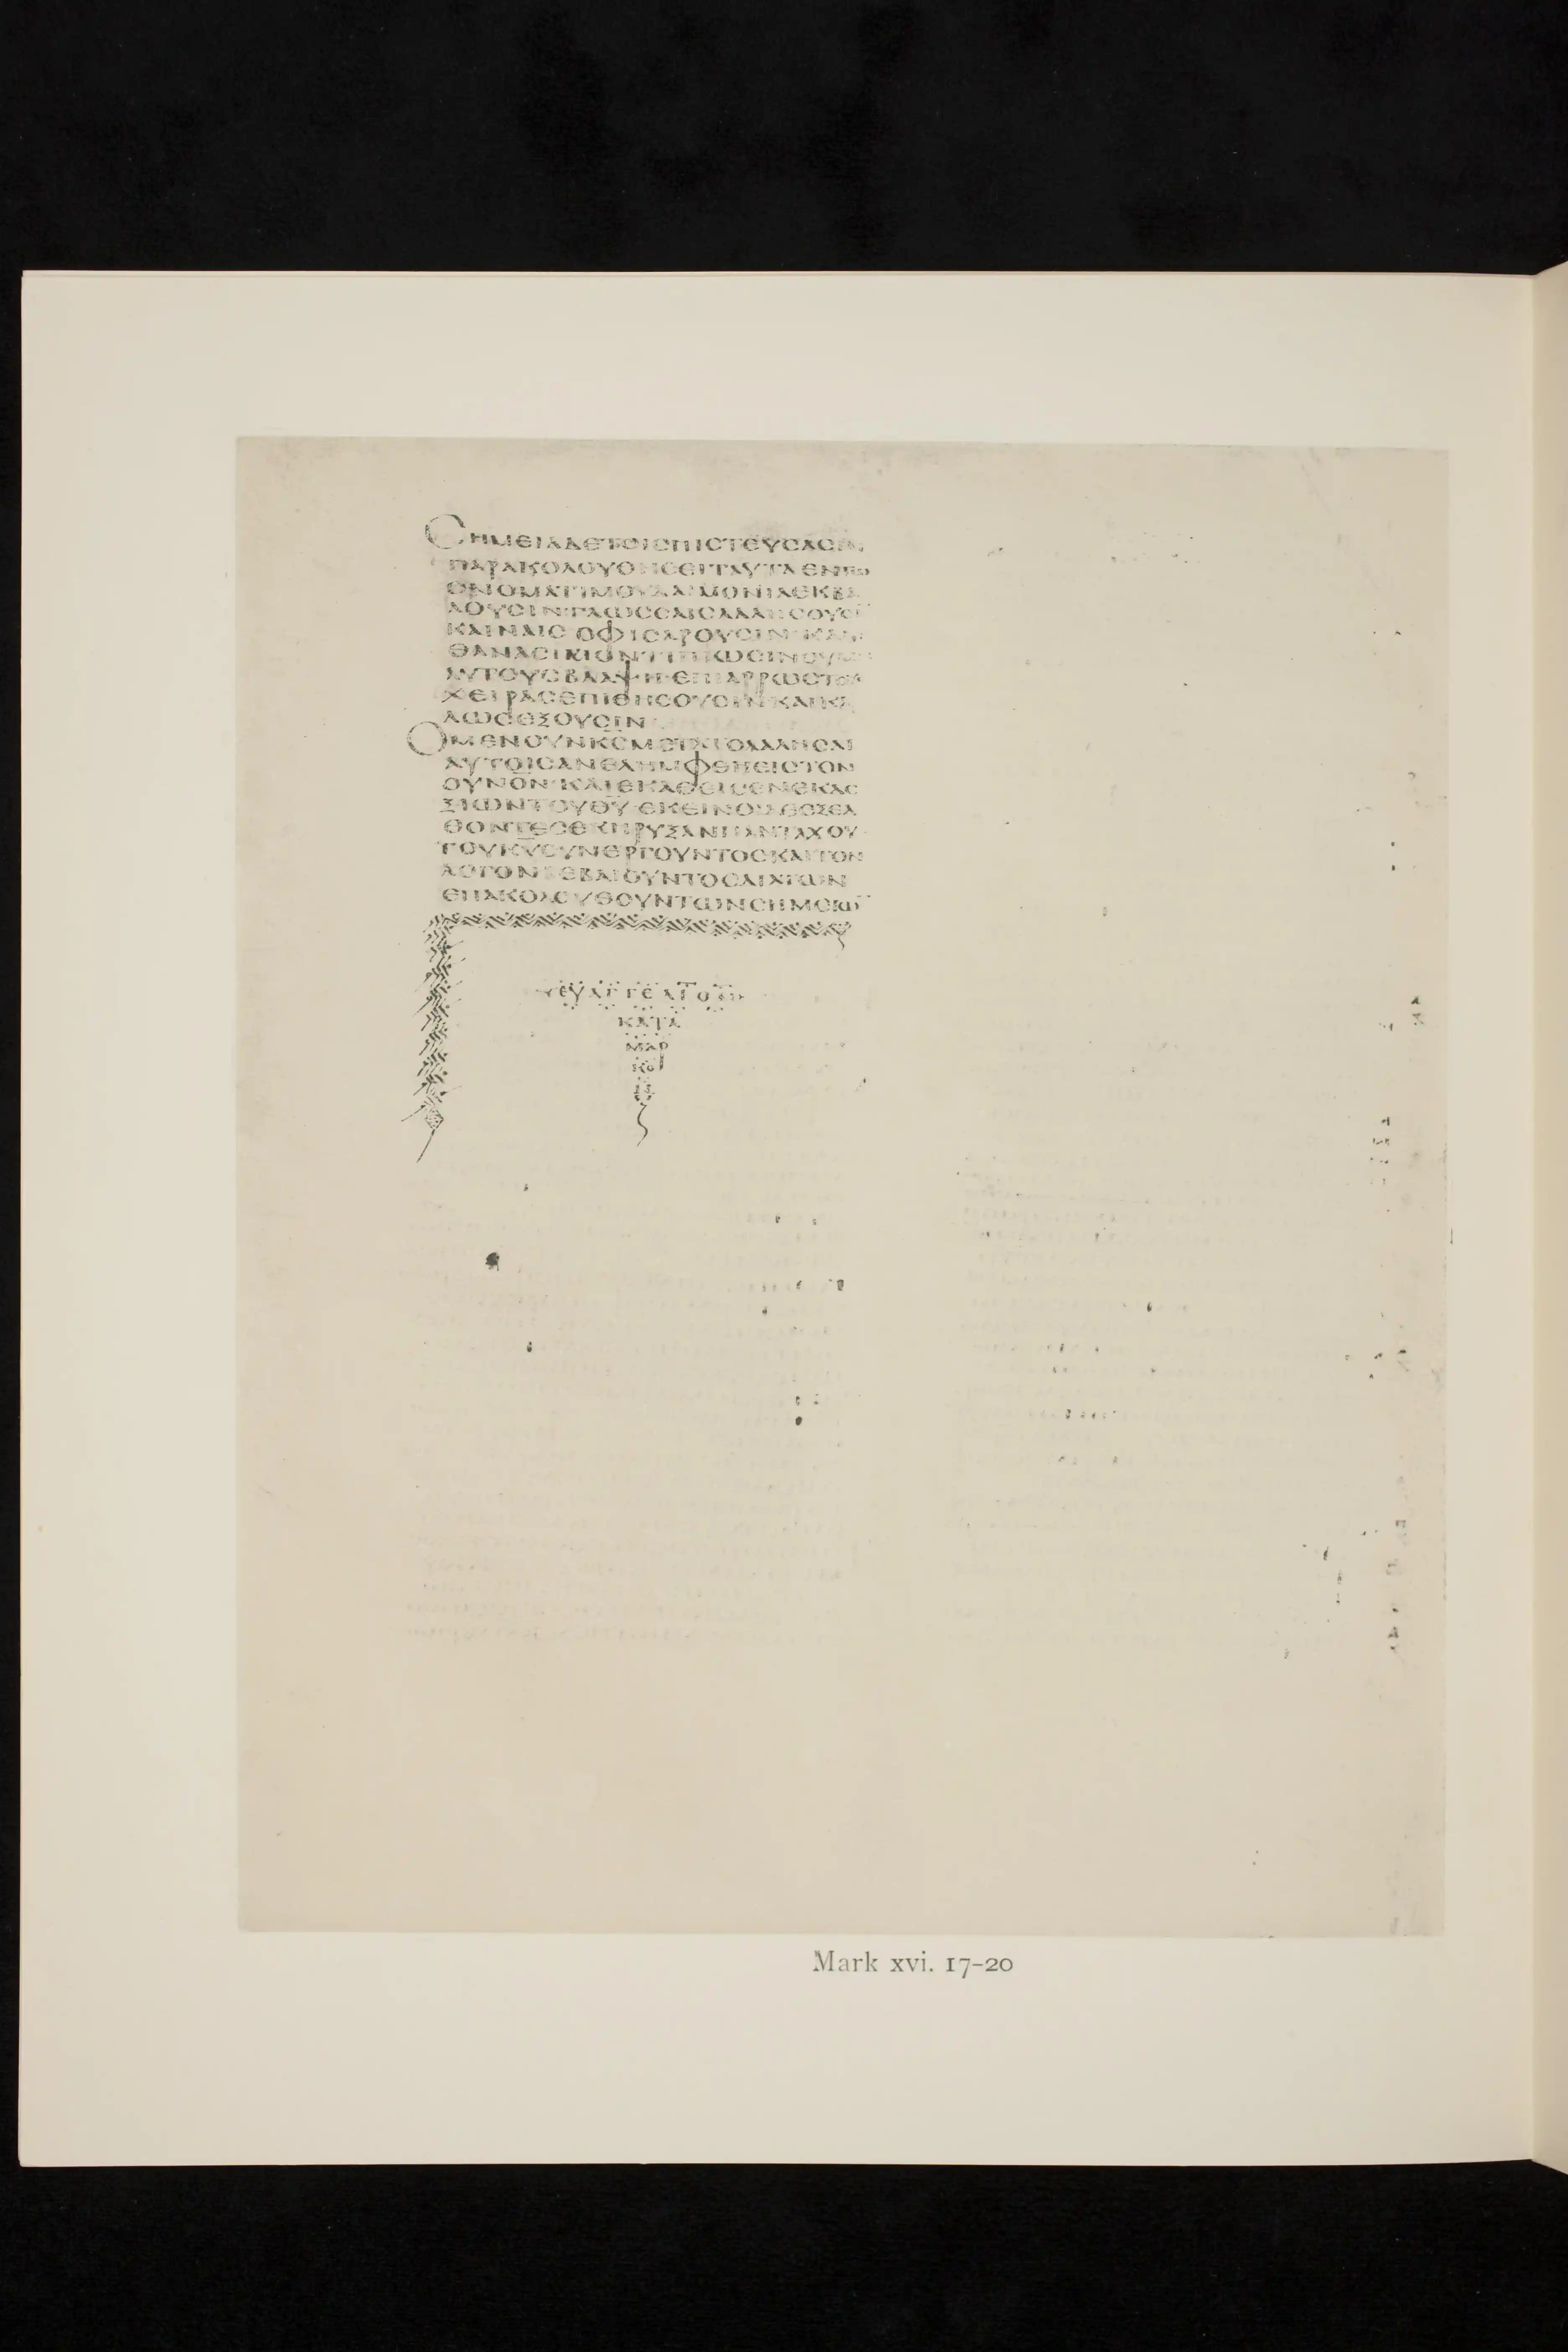 ϹΗΜΕΙΑΔΕΤΟΙϹΠΙϹΤΕΥϹΑϹΙΝ
ΠΑΡΑΚΟΛΟΥΘΗϹΕΙΤΑΥΤΑΕΝΤΩ
ΟΝΟΜΑΤΙΜΟΥΔΑΙΜΟΝΙΑΕΚΒΑ
ΛΟΥϹΙΝ·ΓΛΩϹϹΑΙϹΛΑΛΗϹΟΥϹΙ̅
ΚΑΙΝΑΙϹ·ΟΦΙϹΑΡΟΥϹΙΝ·ΚΑΝ
ΘΑΝΑϹΙΜΟΝΤΙΠΙΩϹΙΝΟΥΜΗ
ΑΥΤΟΥϹΒΛΑΨΗ·ΕΠΙΑΡΡΩϹΤΟΥϹ
ΧΕΙΡΑϹΕΠΙΘΗϹΟΥϹΙΝΚΑΙΚΑ
ΛΩϹΕΞΟΥϹΙΝ
ΟΜΕΝΟΥΝΚ̅Ϲ̅ΜΕΤΑΤΟΛΑΛΗϹΑΙ
ΑΥΤΟΙϹΑΝΕΛΗΜΦΘΗΕΙϹΤΟΝ
ΟΥΝΟΝ·ΚΑΙΕΚΑΘΕΙϹΕΝΕΚΔΕ
ΞΙΩΝΤΟΥΘ̅Υ̅·ΕΚΕΙΝΟΙΔΕΕΞΕΛ
ΘΟΝΤΕϹΕΚΗΡΥΞΑΝΠΑΝΤΑΧΟΥ
ΤΟΥΚ̅Υ̅ϹΥΝΕΡΓΟΥΝΤΟϹΚΑΙΤΟΝ
ΛΟΓΟΝΒΕΒΑΙΟΥΝΤΟϹΔΙΑΤΩΝ
ΕΠΑΚΟΛΟΥΘΟΥΝΤΩΝϹΗΜΕΙΩ̅
ΕΥΑΓΓΕΛΙΟΝ
ΚΑΤΑ
ΜΑΡ
ΚΟ
Mark xvi. 17-20